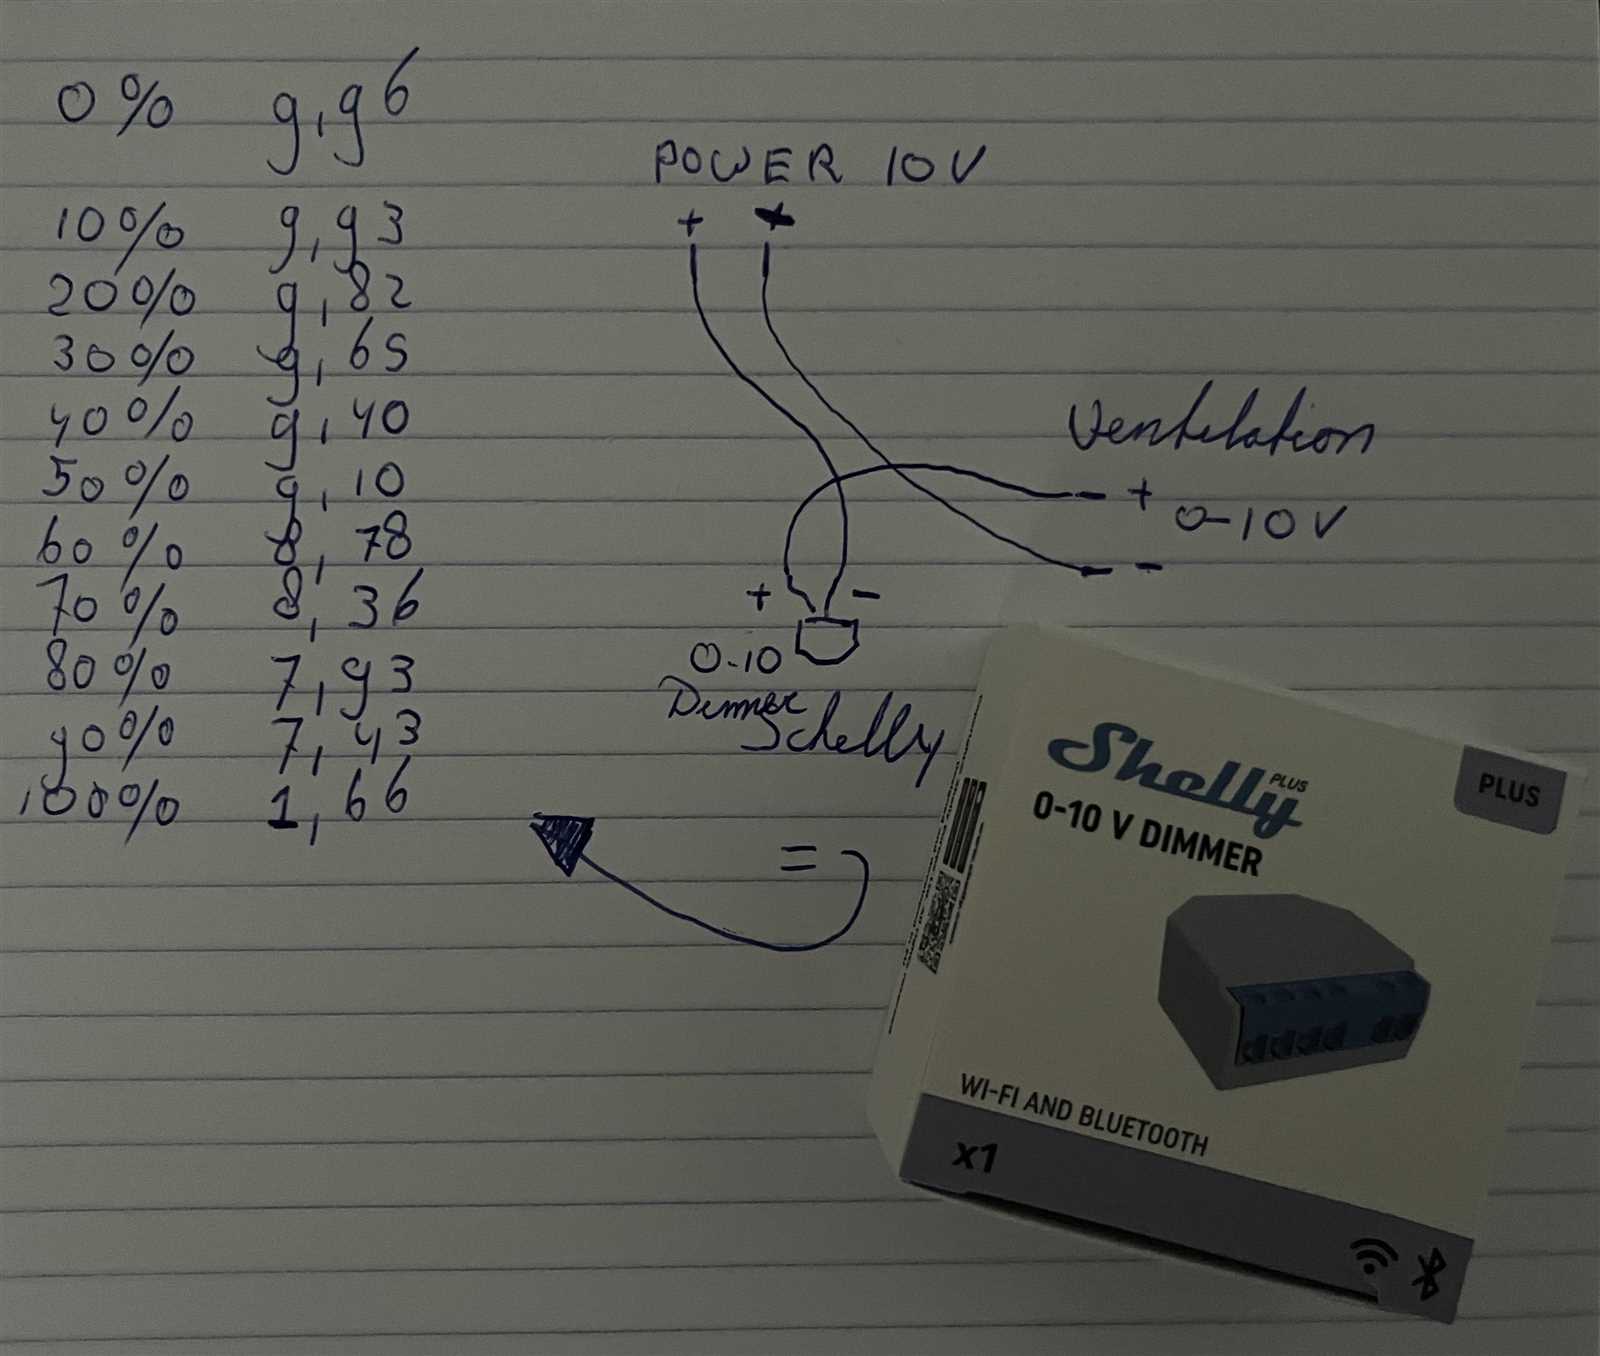 0% 9,96
10% 9,93
20% 9,82
30% 9,65
40% 9,40
50% 9,10
60% 8,78
70% 8,36
80% 7,93
90% 7,43
100% 1,66
POWER 10V
+
Ventilation
- +
0-10V
- -
+ -
0-10
Dimmer
Schelly
=
Shelly PLUS
0-10 V DIMMER
PLUS
WI-FI AND BLUETOOTH
x1